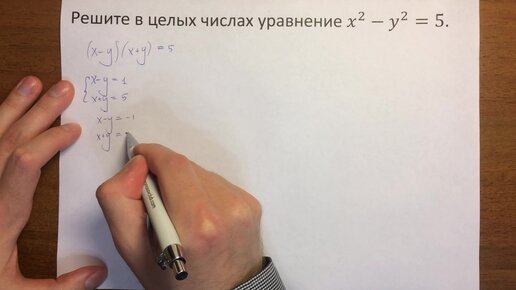 Решите в целых числах уравнение x² − y² = 5.
(x-y)(x+y) = 5
{x-y = 1
x+y = 5
x-y = -1
x+y = -